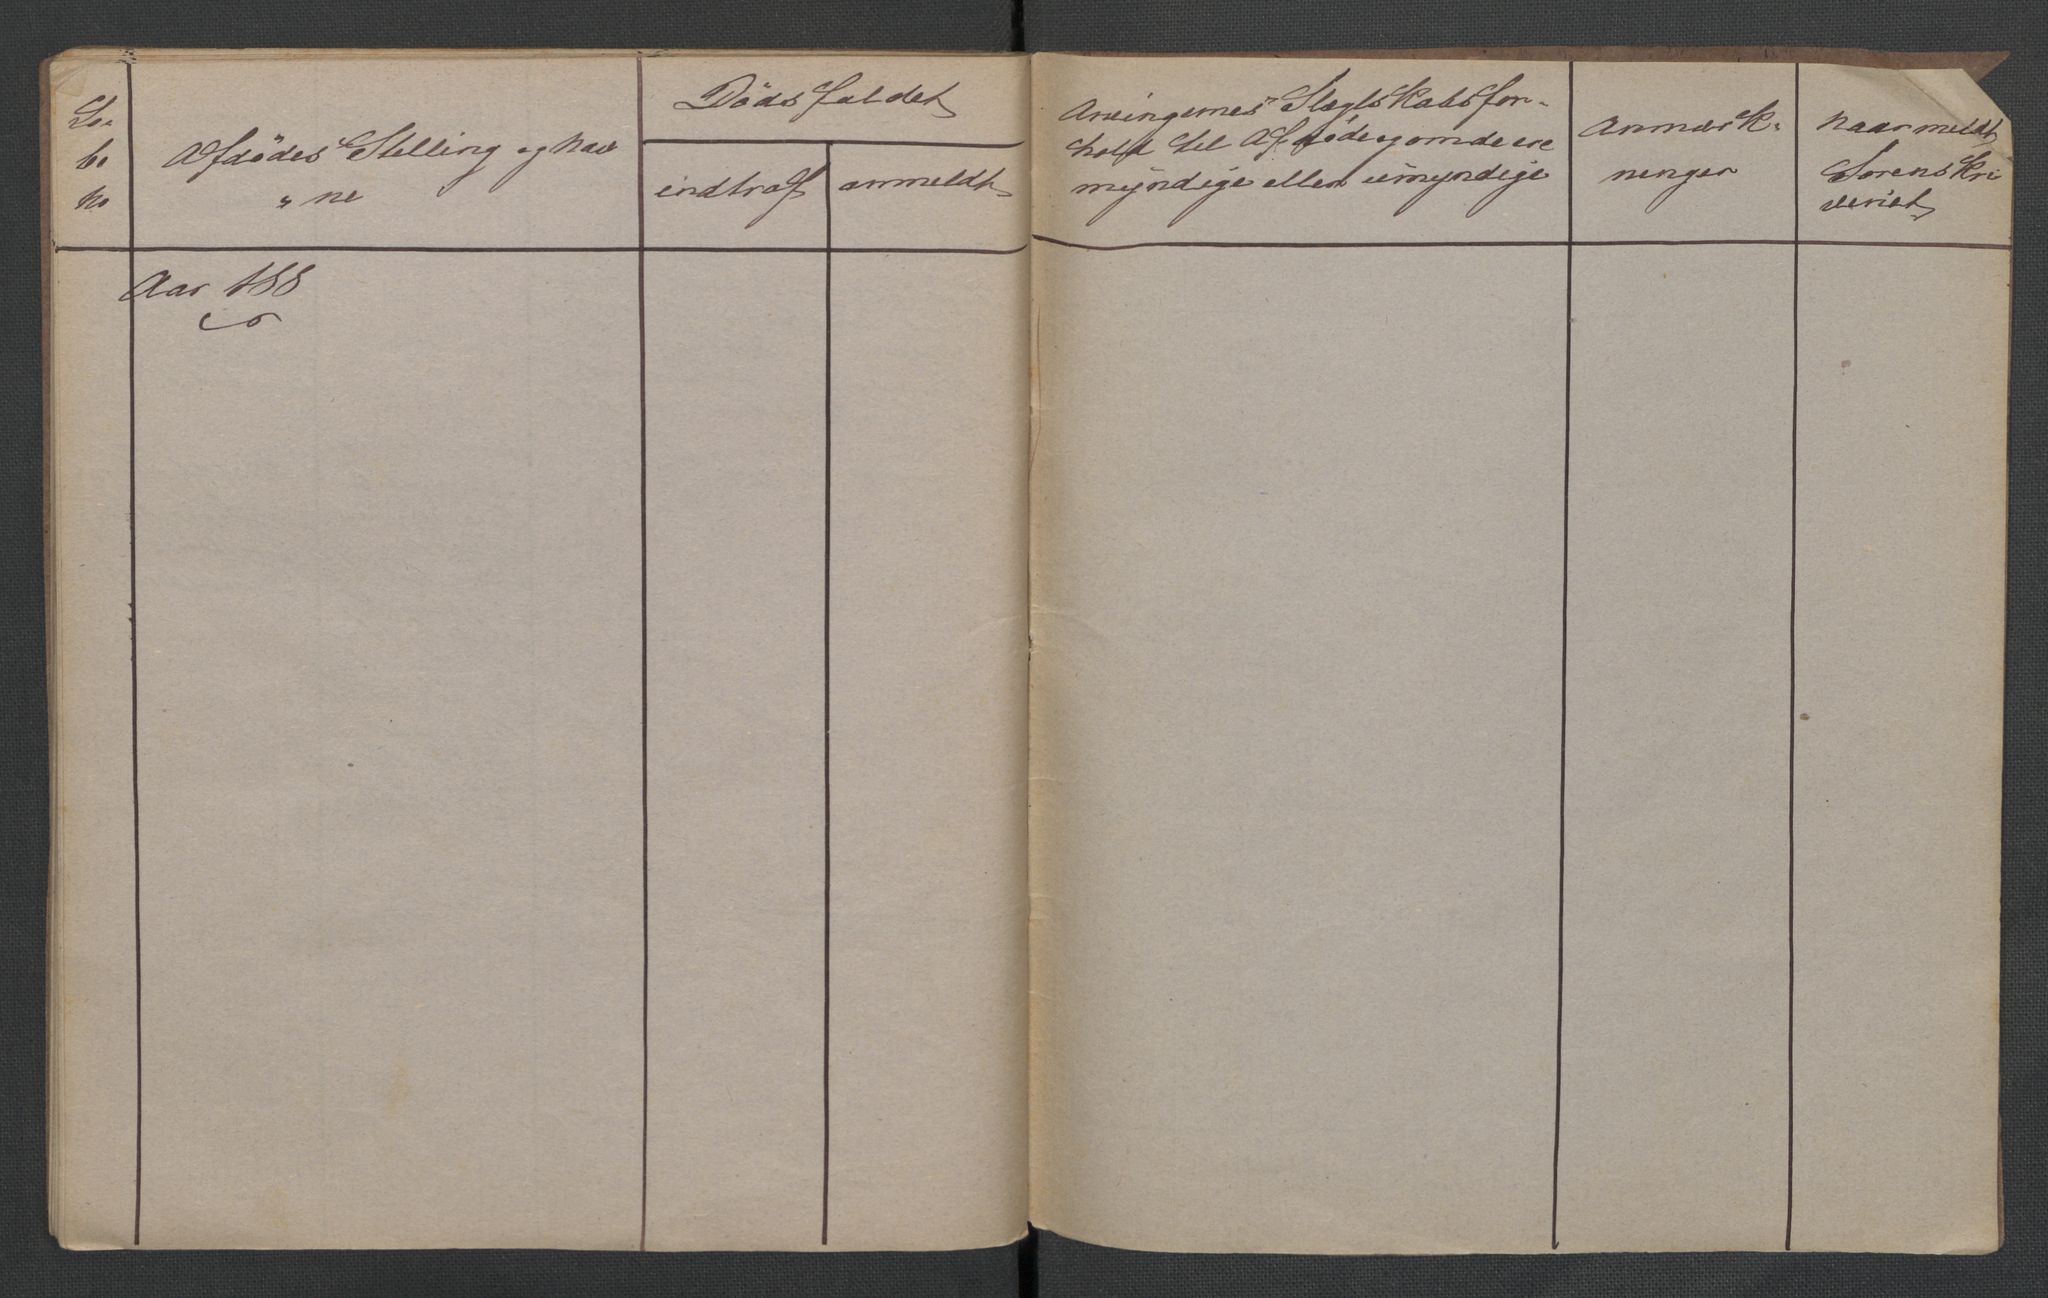 Lø-
be
No
Afdødes Stelling og Nav
„ ne
Dødsfaldet
indtraf
anmeldt
Arvingernes Slægtskabsfor-
hold til Afdøde og om de ere
myndige eller umyndige
Anmærk-
ninger
Naar meldt
Sorenskri
veriet
Aar 188